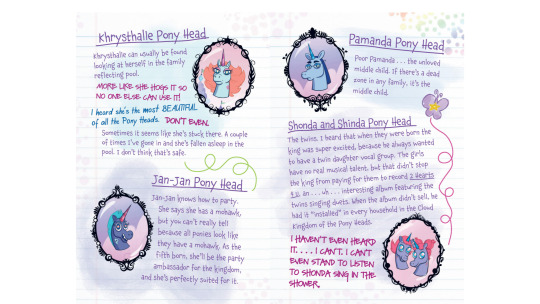 Khrysthalle Pony Head
Khrysthalle can usually be found
looking at herself in the family
reflecting pool.
MORE LIKE SHE HOGS IT SO
NO ONE ELSE CAN USE IT!
I heard she's the most BEAUTIFUL
of all the Pony Heads. DON'T EVEN.
Sometimes it seems like she's stuck there. A couple
of times I've gone in and she's fallen asleep in the
pool. I don't think that's safe.
Jan-Jan Pony Head
Jan-Jan knows how to party.
She says she has a mohawk,
but you can't really tell
because all ponies look like
they have a mohawk. As the
fifth born, she'll be the party
ambassador for the kingdom,
and she's perfectly suited for it.
Pamanda Pony Head
Poor Pamanda . . . the unloved
middle child. If there's a dead
zone in any family, it's the
middle child.
Shonda and Shinda Pony Head
The twins. I heard that when they were born the
king was super excited, because he always wanted
to have a twin daughter vocal group. The girls
have no real musical talent, but that didn't stop
the king from paying for them to record 2 Hearts
an . . . uh . . . interesting album featuring the
twins singing duets. When the album didn't sell, he
had it "installed" in every household in the Cloud
Kingdom of the Pony Heads.
I HAVEN'T EVEN HEARD
IT. . . . I CAN'T. I CAN'T
EVEN STAND TO LISTEN
TO SHONDA SING IN THE
SHOWER.